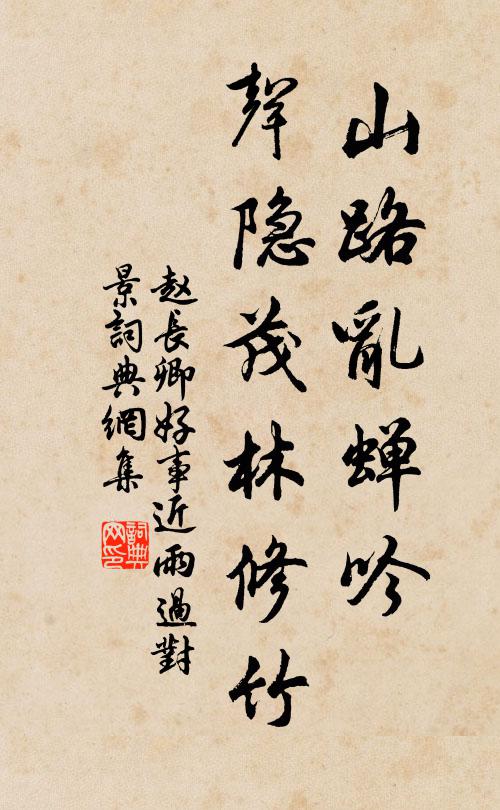 山路亂蝉吟
聲隐茂林修竹
赵長卿好事近雨過對
景詞典網集
詞典
网印